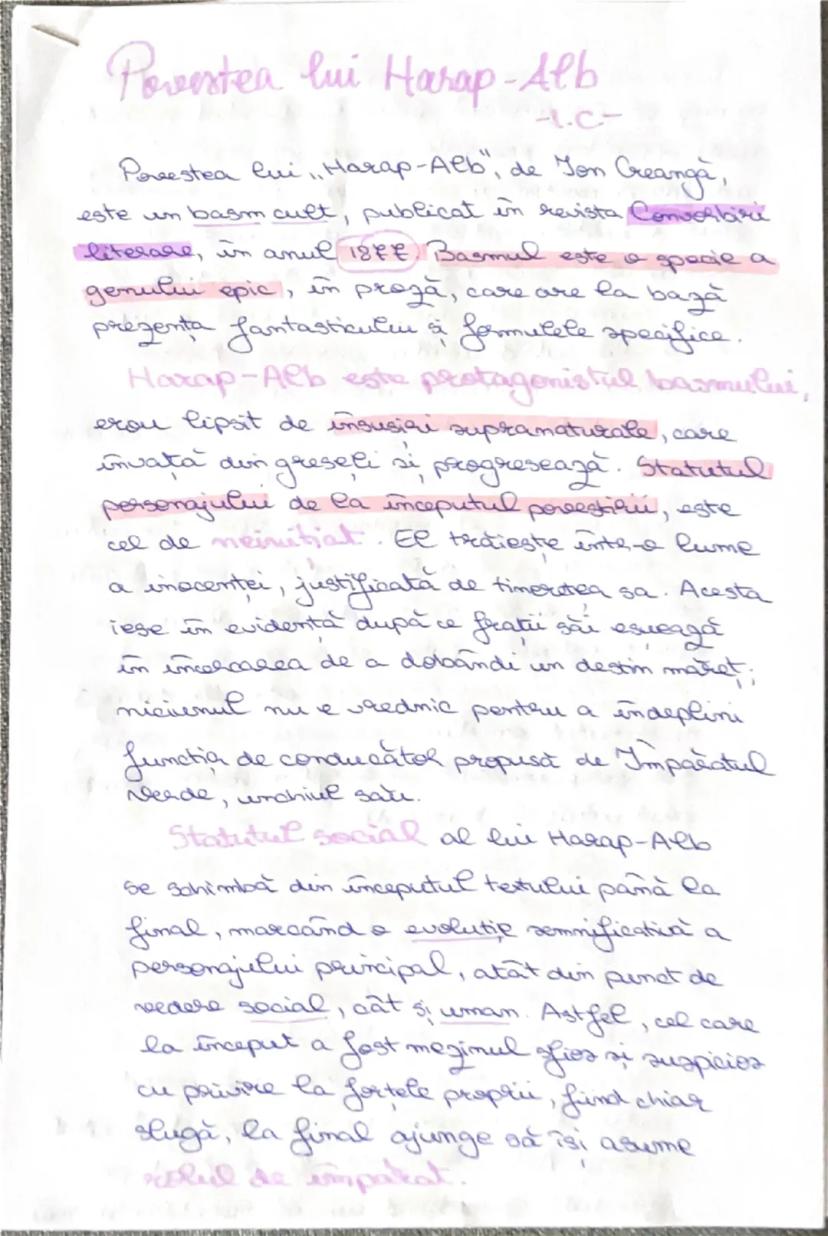 Povestea lui Harap-Alb
-I.C-
Povestea lui „Harap-Alb", de Ion Creangă,
este un basm cult, publicat în revista Convorbiri
literare, în anul 1877. Basmul este o specie a
genului epic, în proză, care are la bază
prezența fantasticului și formulele specifice.
Harap-Alb este protagonistul basmului,
erou lipsit de însușiri supranaturale, care
învață din greșeli și progresează. Statutul
personajului de la începutul povestirii, este
cel de neinițiat. El trăiește într-o lume
a inocenței, justificată de tinerețea sa. Acesta
iese în evidență după ce frații săi eșuează
în încercarea de a dobândi un destin măreț;
niciunul nu e vrednic pentru a îndeplini
funcția de conducător propusă de Împăratul
Verde, unchiul său.
Statutul social al lui Harap-Alb
se schimbă din începutul textului până la
final, marcând o evoluție semnificativă a
personajului principal, atât din punct de
vedere social, cât și uman. Astfel, cel care
la început a fost mezinul sfios și suspicios
cu privire la forțele proprii, fiind chiar
slugă, la final ajunge să își asume
rolul de împărat.